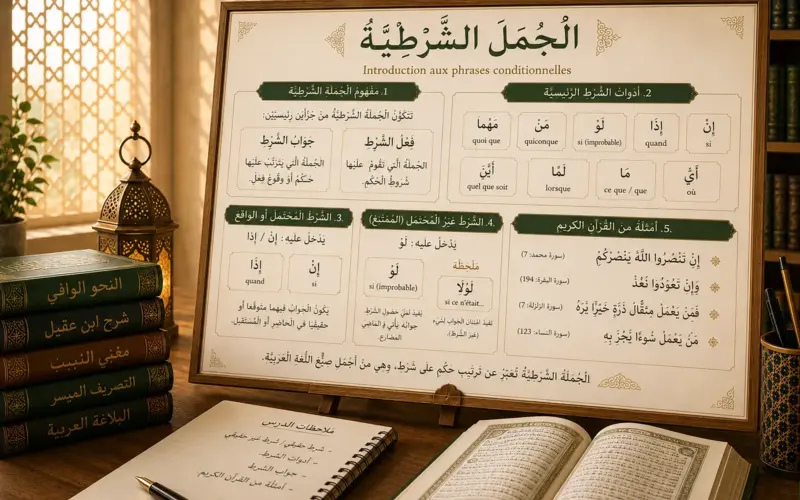 الْجُمَلَ الشَّرْطِيَّةُ
Introduction aux phrases conditionnelles
1. مَفْهُومُ الْجُمْلَةِ الشَّرْطِيَّةِ
تَتَكَوَّنُ الْجُمْلَةُ الشَّرْطِيَّةُ مِنْ جُزْأَيْنِ رَئِيسِيَّيْنِ:
فِعْلُ الشَّرْطِ
الجُمْلَةُ الَّتِي تَقُومُ عَلَيْهَا
شُرُوطُ الْحُكْمِ.
جَوَابُ الشَّرْطِ
الجُمْلَةُ الَّتِي يَتَرَتَّبُ عَلَيْهَا
حُكْمٌ أَوْ وُقُوعُ فِعْلٍ.
2. أَدَوَاتُ الشَّرْطِ الرَّئِيسِيَّة
إِنْ
si
إِذَا
quand
لَوْ
si (improbable)
مَنْ
quiconque
مَهْمَا
quoi que
أَيُّ
où
مَا
ce que / que
لَمَّا
lorsque
أَيْنَ
quel que soit
3. الشَّرْطُ الْمُحْتَمَلُ أَو الْوَاقِعُ
يَدْخُلُ عَلَيْهِ: إِنْ / إِذَا
إِنْ
si
إِذَا
quand
يَكُونُ الْجَوَابُ فِيهِمَا مُتَوَقَّعًا أَوْ
حَقِيقِيًّا فِي الْحَاضِرِ أَو الْمُسْتَقْبَلِ.
4. الشَّرْطُ غَيْرُ الْمُحْتَمَلِ (الْمُمْتَنِعُ)
يَدْخُلُ عَلَيْهِ: لَوْ
لَوْ
si (improbable)
مُلَاحَظَة
لَوْلَا
si ce n'était...
5. أَمْثِلَةٌ مِنَ الْقُرْآنِ الْكَرِيمِ
إِنْ تَنْصُرُوا اللَّهَ يَنْصُرْكُمْ (سورة محمد: 7)
وَإِنْ تَعُودُوا نَعُدْ (سورة البقرة: 194)
فَمَنْ يَعْمَلْ مِثْقَالَ ذَرَّةٍ خَيْرًا يَرَهُ (سورة الزلزلة: 7)
مَنْ يَعْمَلْ سُوءًا يُجْزَ بِهِ (سورة النساء: 123)
الْجُمْلَةُ الشَّرْطِيَّةُ تُعَبِّرُ عَنْ تَرْتِيبِ حُكْمٍ عَلَى شَرْطٍ، وَهِيَ مِنْ أَجْمَلِ صِيَغِ اللُّغَةِ الْعَرَبِيَّةِ.
النحو الوافي
شرح ابن عقيل
مغني النبيب
التصريف الميسر
البلاغة العربية
ملاحظات الدرس
- شرط حقيقي / شرط غير حقيقي
- أدوات الشرط
- جواب الشرط
- أمثلة من القرآن الكريم